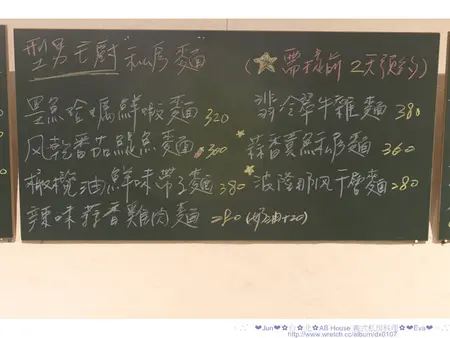 型男主廚"私房麵"
(★需提前2天預約)
墨魚蛤蠣鮮蝦麵 320
翡冷翠牛雜麵 380
风乾番茄鯷魚麵 300
蒜香薑魚私房麵 360
橄欖油鮮味帶子麵 380
波隆那风干層麵 280
辣味蒜香雞肉麵 280 (奶油+20)
❤Jun❤✿台✿北✿AB House 義式私房料理✿❤Eva❤
http://www.wretch.cc/album/dx0107